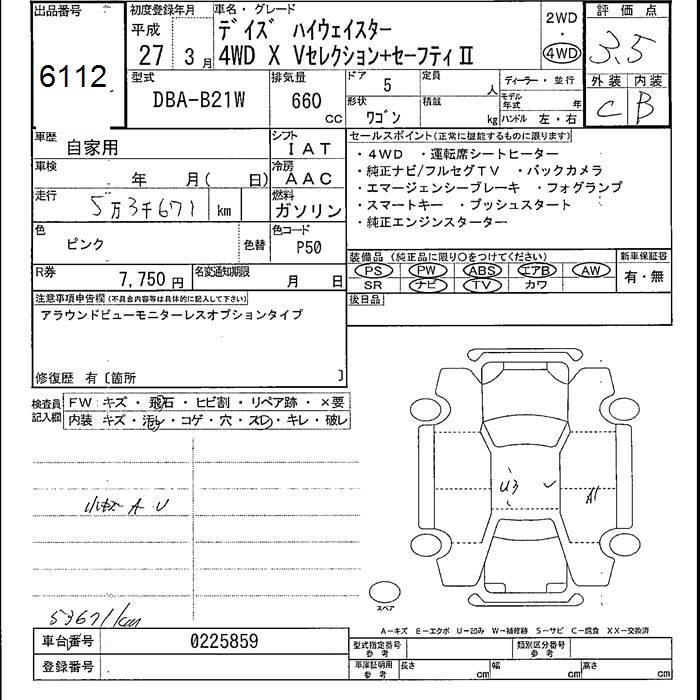 出品番号
6112
初度登録年月
平成
27年 3月
車名・グレード
デイズ ハイウェイスター
4WD X Vセレクション+セーフティⅡ
2WD
・
4WD
評価点
3.5
外装 内装
C B
型式
DBA-B21W
排気量
660
cc
ドア 5
形状
ワゴン
定員
人
積載
kg
ディーラー・並行
モデル年式
年
ハンドル 左・右
車歴
自家用
シフト
IAT
車検
年 月( 日)
冷房
AAC
走行
5万3千671 km
燃料
ガソリン
色
ピンク
色替
色コード
P50
セールスポイント(正常に機能するものに限ります)
・4WD ・運転席シートヒーター
・純正ナビ/フルセグTV ・バックカメラ
・エマージェンシーブレーキ ・フォグランプ
・スマートキー ・プッシュスタート
・純正エンジンスターター
R券
7,750円
名変通知期限
月 日
装備品(純正品に限り○をつけてください)
PS PW ABS エアB AW
SR ナビ TV カワ
新車保証書
有・無
後日品
注意事項申告欄(不具合内容等は具体的に記入して下さい)
アラウンドビューモニターレスオプションタイプ
修復歴 有〔箇所 〕
検査員記入欄
FW: キズ・飛石・ヒビ割・リペア跡・×要
内装 キズ・汚レ・コゲ・穴・スレ・キレ・破レ
小キズ A U
U3
A1
スペア
53671km
A-キズ E-エクボ U-凹み W-補修跡 S-サビ C-腐食 XX-交換済
車台番号
0225859
登録番号
型式指定番号
参考
類別区分番号
参考
車庫証明用
参考
長さ
cm
幅
cm
高さ
cm